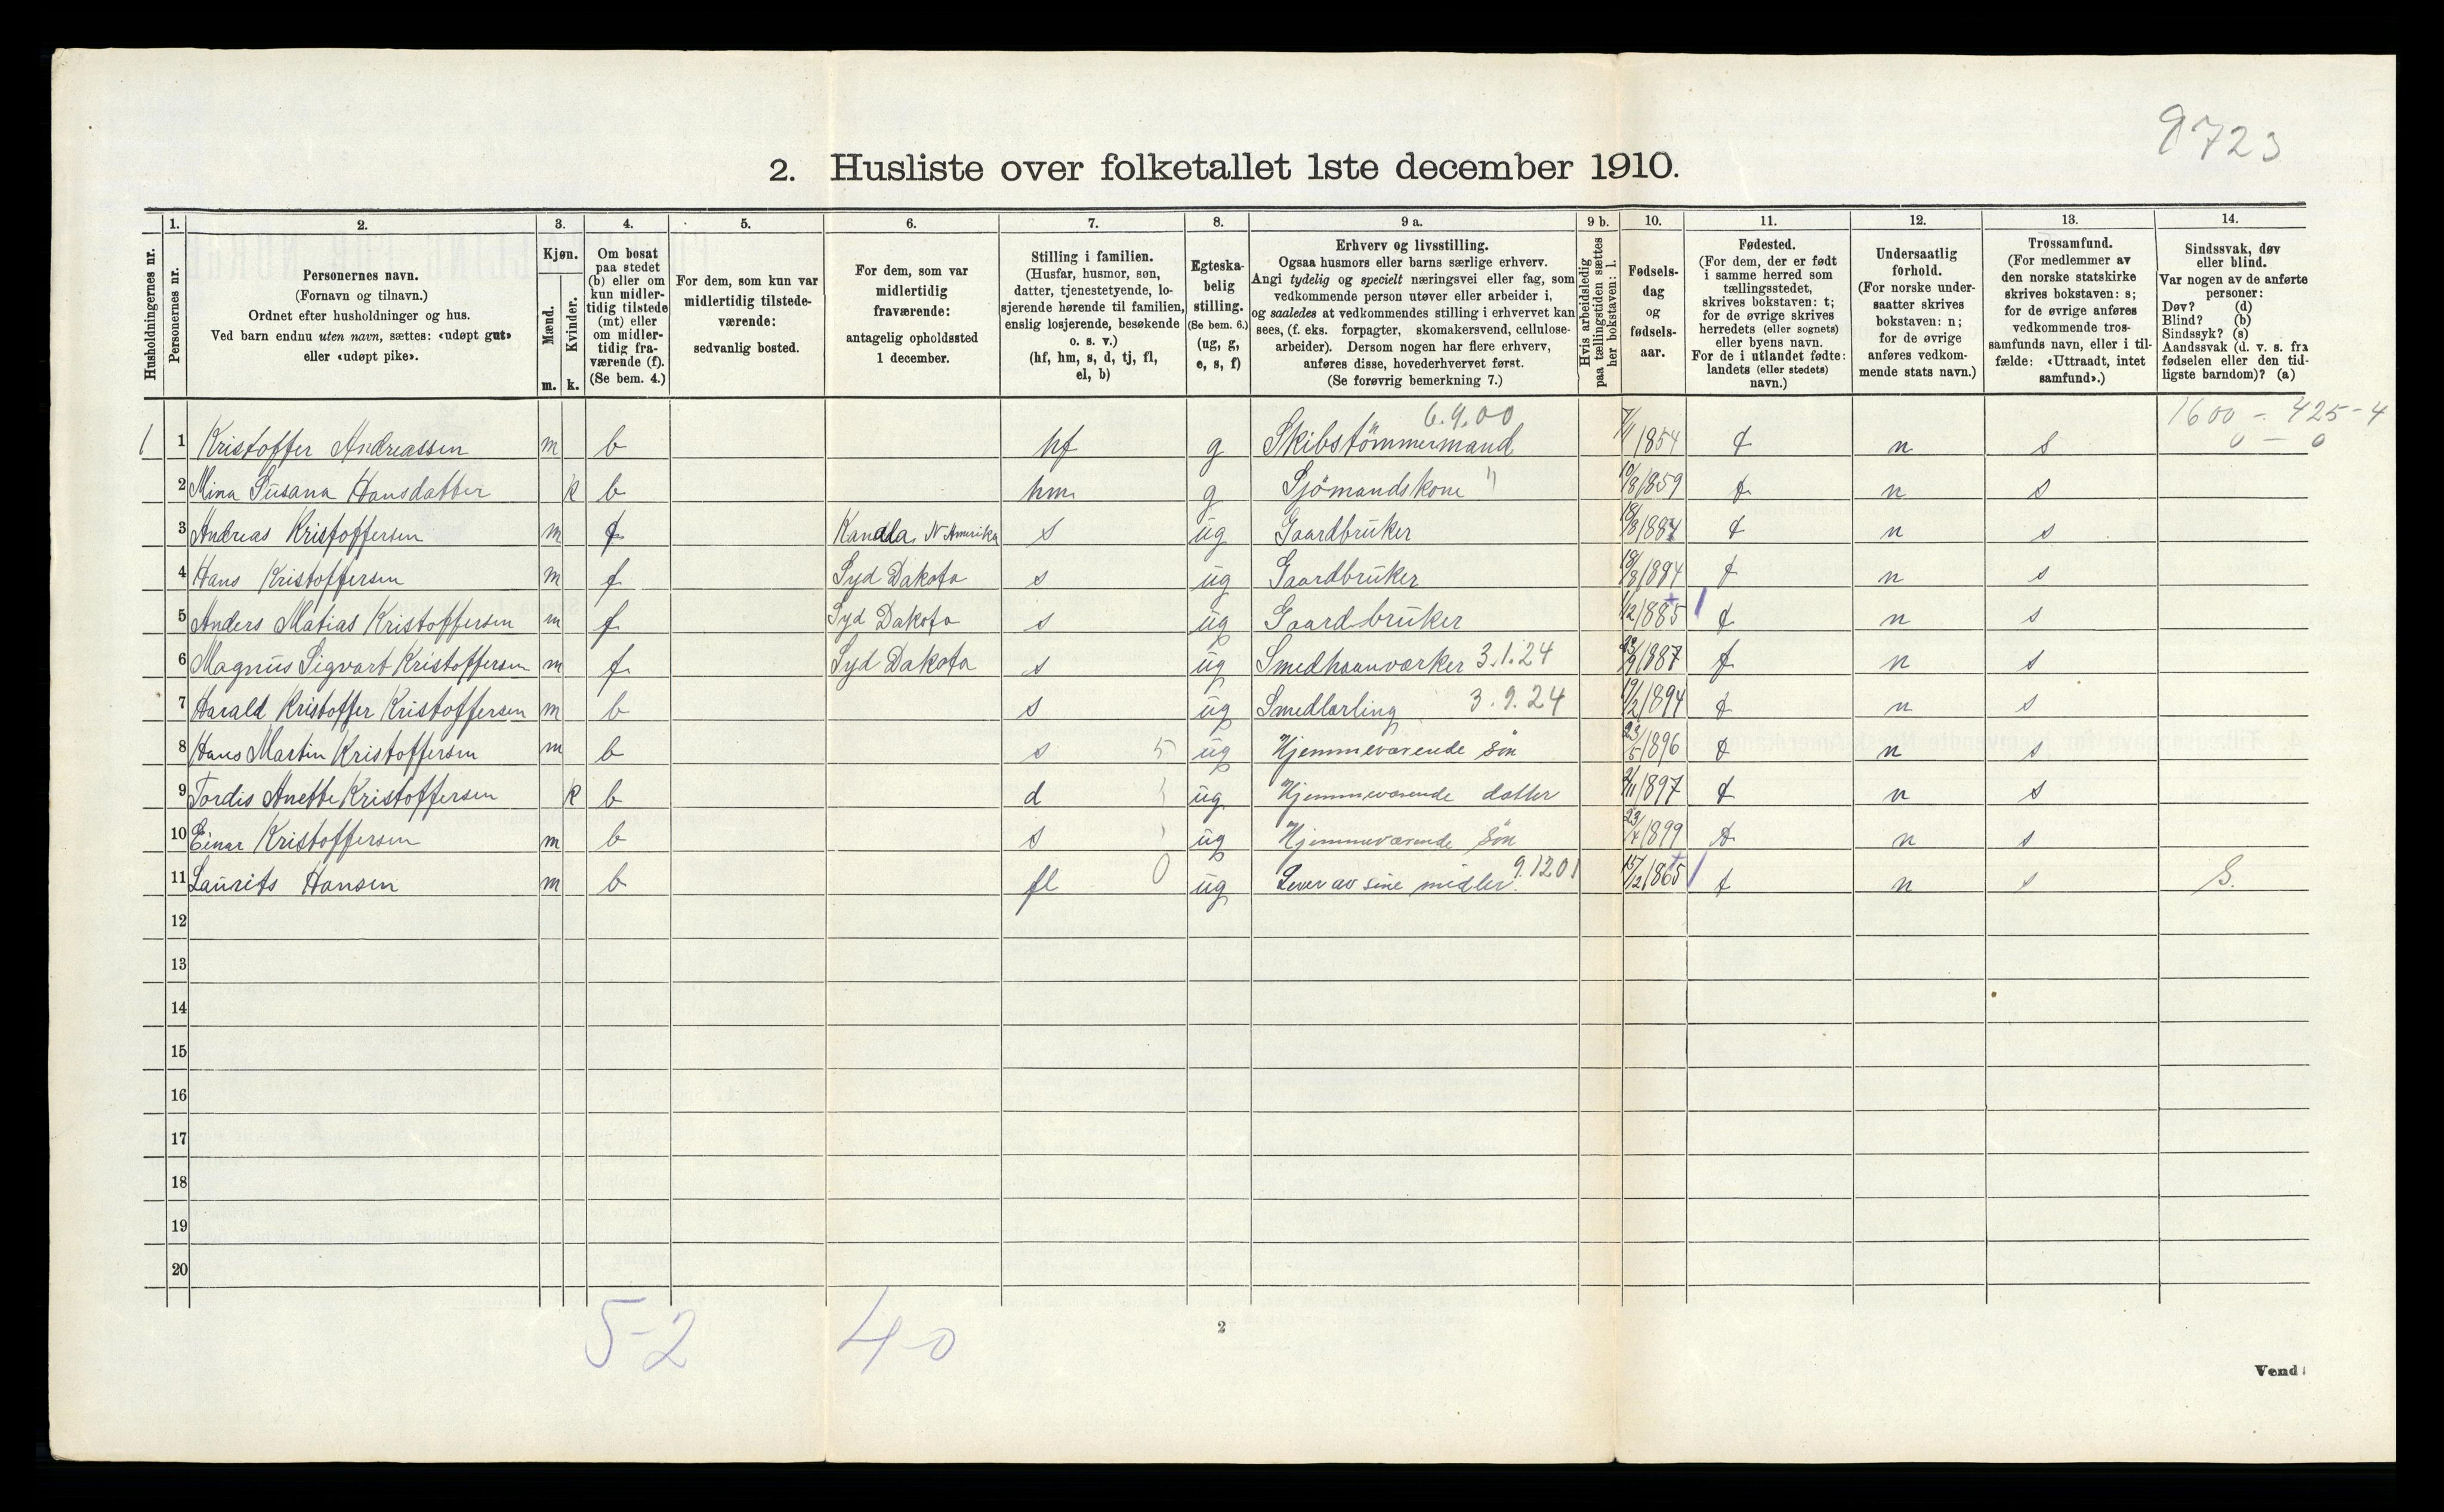 9723
2. Husliste over folketallet 1ste december 1910.
Husholdningernes nr.
1.
Personernes nr.
2.
Personernes navn.
(Fornavn og tilnavn.)
Ordnet efter husholdninger og hus.
Ved barn endnu uten navn, sættes: «udøpt gut»
eller «udøpt pike».
3.
Kjøn.
Mænd.
m.
Kvinder.
k.
4.
Om bosat
paa stedet
(b) eller om
kun midler-
tidig tilstede
(mt) eller
om midler-
tidig fra-
værende (f).
(Se bem. 4.)
5.
For dem, som kun var
midlertidig tilstede-
værende:
sedvanlig bosted.
6.
For dem, som var
midlertidig
fraværende:
antagelig opholdssted
1 december.
7.
Stilling i familien.
(Husfar, husmor, søn,
datter, tjenestetyende, lo-
sjerende hørende til familien,
enslig losjerende, besøkende
o. s. v.)
(hf, hm, s, d, tj, fl,
el, b)
8.
Egteska-
belig
stilling.
(Se bem. 6.)
(ug, g,
e, s, f)
9 a.
Erhverv og livsstilling.
Ogsaa husmors eller barns særlige erhverv.
Angi tydelig og specielt næringsvei eller fag, som
vedkommende person utøver eller arbeider i,
og saaledes at vedkommendes stilling i erhvervet kan
sees, (f. eks. forpagter, skomakersvend, cellulose-
arbeider). Dersom nogen har flere erhverv,
anføres disse, hovederhvervet først.
(Se forøvrig bemerkning 7.)
9 b.
Hvis arbeidsledig
paa tællingstiden sættes
her bokstaven: l.
10.
Fødsels-
dag
og
fødsels-
aar.
11.
Fødested.
(For dem, der er født
i samme herred som
tællingsstedet,
skrives bokstaven: t;
for de øvrige skrives
herredets (eller sognets)
eller byens navn.
For de i utlandet fødte:
landets (eller stedets)
navn.)
12.
Undersaatlig
forhold.
(For norske under-
saatter skrives
bokstaven: n;
for de øvrige
anføres vedkom-
mende stats navn.)
13.
Trossamfund.
(For medlemmer av
den norske statskirke
skrives bokstaven: s;
for de øvrige anføres
vedkommende tros-
samfunds navn, eller i til-
fælde: «Uttraadt, intet
samfund».)
14.
Sindssvak, døv
eller blind.
Var nogen av de anførte
personer:
Døv? (d)
Blind? (b)
Sindssyk? (s)
Aandssvak (d. v. s. fra
fødselen eller den tid-
ligste barndom)? (a)
6.9.00 1600 - 425-4
1 1 Kristoffer Andreassen m b hf g Skibstömmermand 7/1 1854 t n s 0 - 0
2 Mina Susana Hansdatter k b hm g Sjömandskone " 10/8 1859 t n s
3 Andreas Kristoffersen m f Kanada, N Amerika s ug Gaardbruker 1881 t n s
4 Hans Kristoffersen m f Syd Dakota s ug Gaardbruker 1884 t n s
5 Anders Matias Kristoffersen m f Syd Dakota s ug Gaardbruker 1/12 1885 t n s
6 Magnus Sigvart Kristoffersen m f Syd Dakota s ug Smedhaanværker 3.1.24 1887 t n s
7 Harald Kristoffer Kristoffersen m b s ug Smedlærling 3.9.24 19/2 1894 t n s
8 Hans Martin Kristoffersen m b s 5 ug Hjemmeværende sön 23/5 1896 t n s
9 Tordis Anette Kristoffersen k b d ug Hjemmeværende datter 2/11 1897 t n s
10 Einar Kristoffersen m b s ug Hjemmeværende sön 23/4 1899 t n s
11 Laurits Hansen m b fl 0 ug Lever av sine midler. 9.1201 15/12 1865 t n s S.
12
13
14
15
16
17
18
19
20
52 40
2
Vend